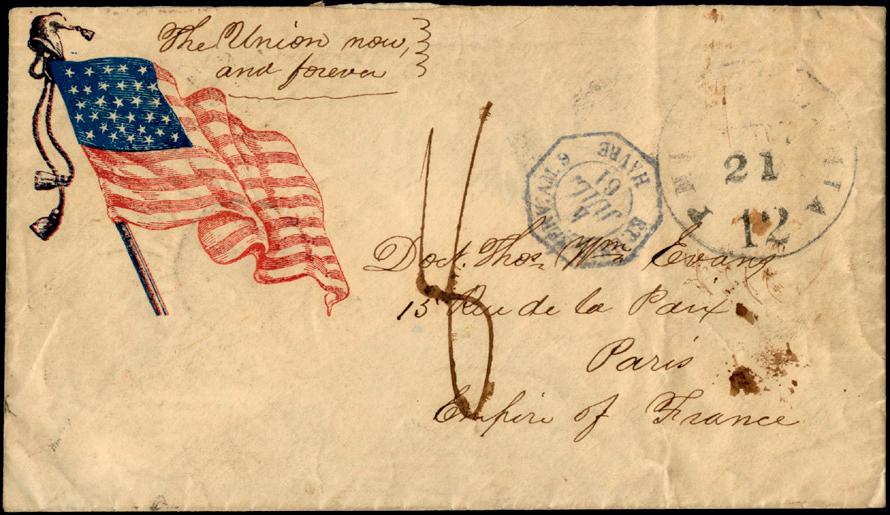 The Union now,
and forever
21
12
4
JUIL.
61
HAVRE
Doct. Thos. Wm. Evans
15 Rue de la Paix
Paris
Empire of France